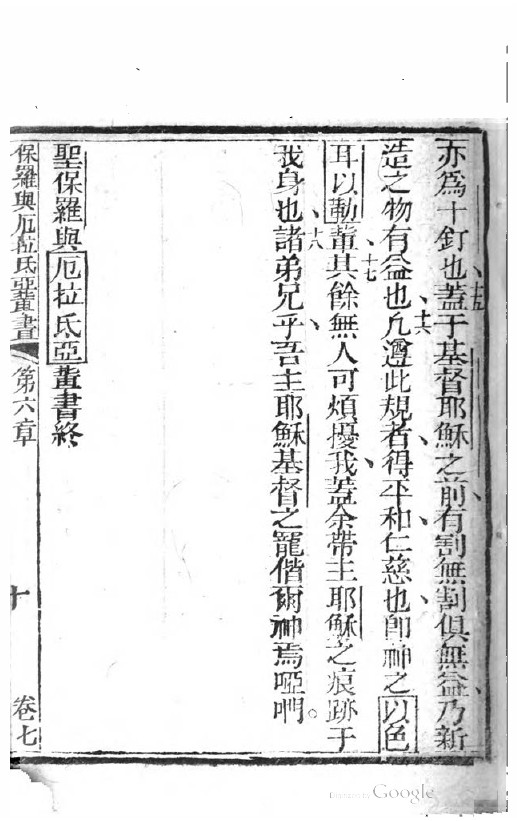 亦為十釘也十五蓋于基督耶穌之前有割無割俱無益乃新
造之物有益也十六凢遵此規者得平和仁慈也即神之以色
耳以勒輩十七其餘無人可煩擾我蓋余帶主耶穌之痕跡于
我身也十八諸弟兄乎吾主耶穌基督之寵偕爾神焉啞們。
聖保羅與厄拉氐亞輩書終
保羅與厄拉氐亞輩書 第六章 十 卷七
Digitized by Google